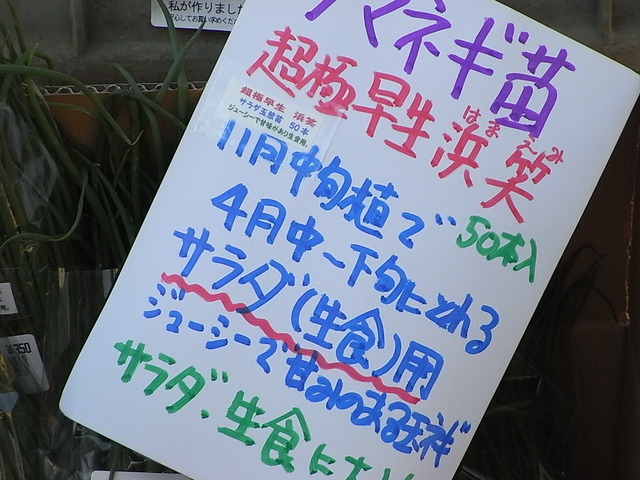 私が作りました
安心してお買い求めくだ
マネギ苗
超極早生 浜笑
はま えみ
超極早生 浜笑
サラダ玉葱苗 50本
ジューシーで甘味があり生食用。
11月中旬植で 50本入
4月中~下旬にとれる
サラダ(生食)用
ジューシーで甘みのある玉ネギ
サラダ、生食に
350